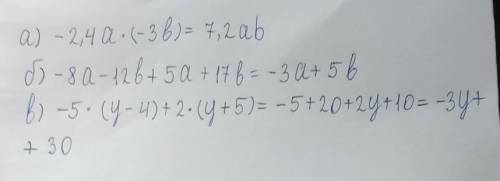 а) -2,4a·(-3b)= 7,2ab
б) -8a-12b+5a+17b= -3a+5b
в) -5·(y-4)+2·(y+5)= -5+20+2y+10= -3y+
+30